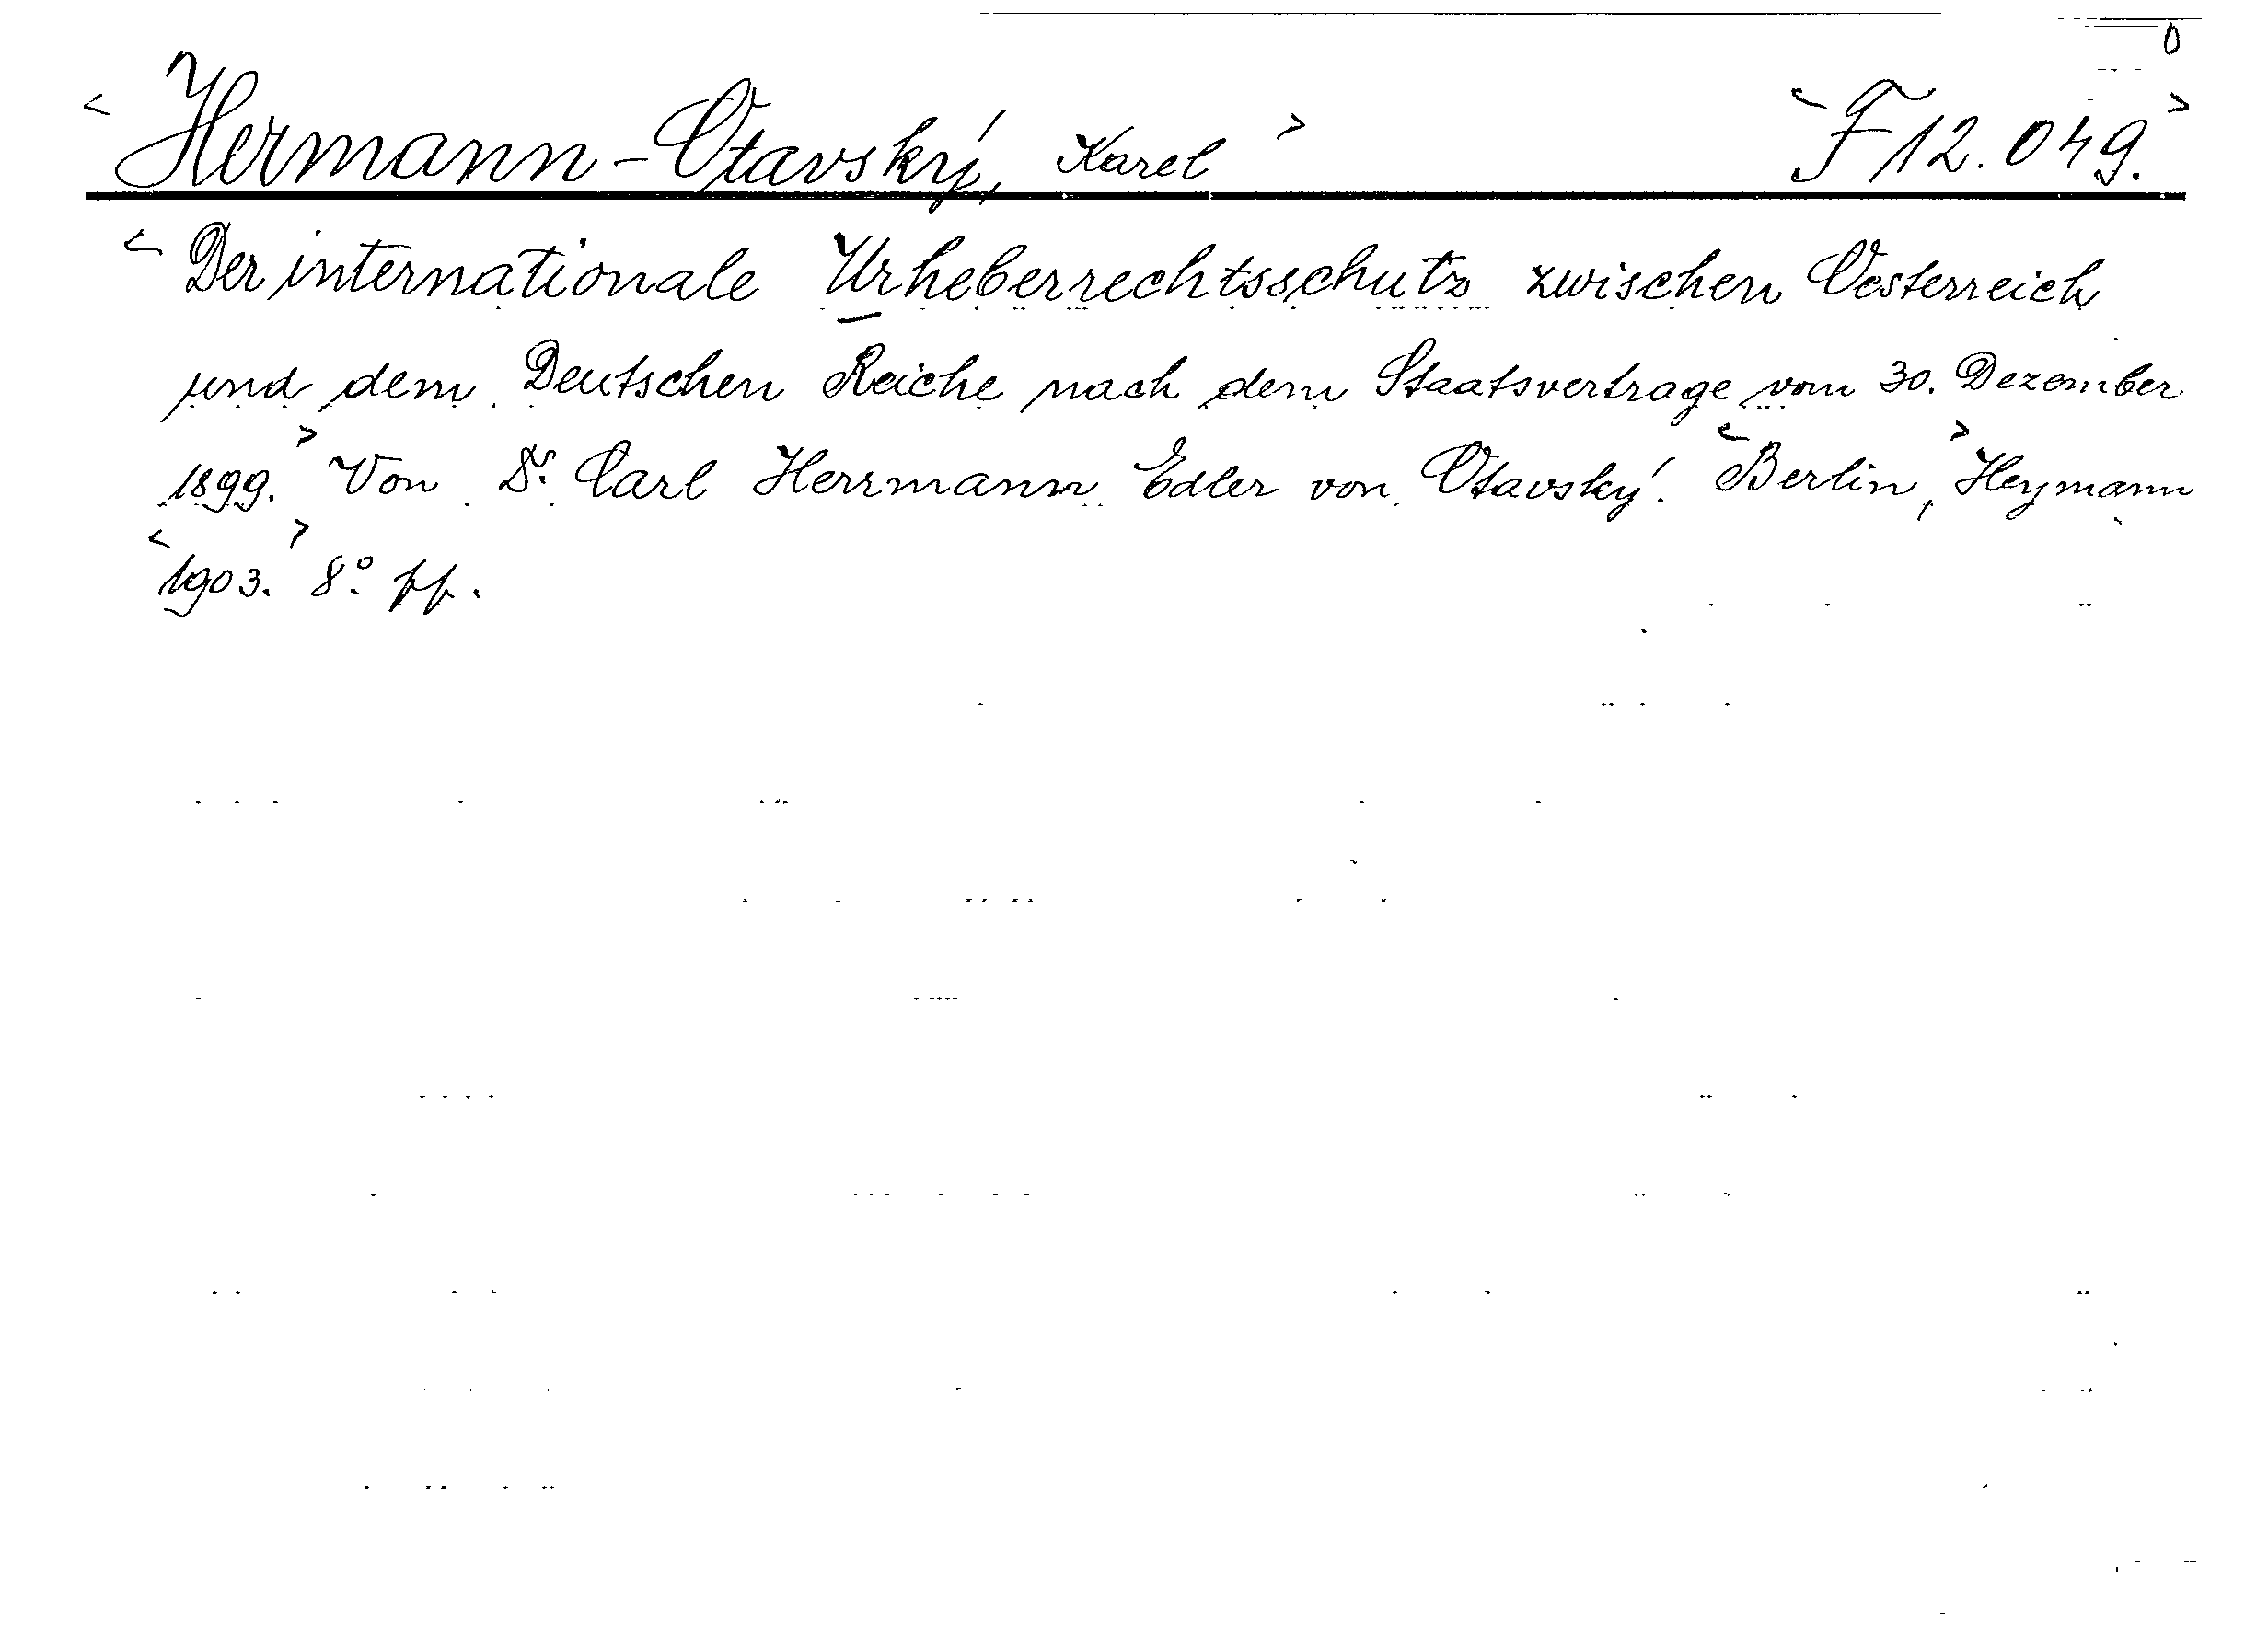 0
< Hermann-Otavský, Karel > < F 12.049. >
< Der internationale Urheberrechtsschutz zwischen Oesterreich
und dem Deutschen Reiche nach dem Staatsvertrage vom 30. Dezember
1899. > Von Dr. Carl Herrmann Edler von Otavský. < Berlin, > Heymann
< 1903. > 8°. pp.